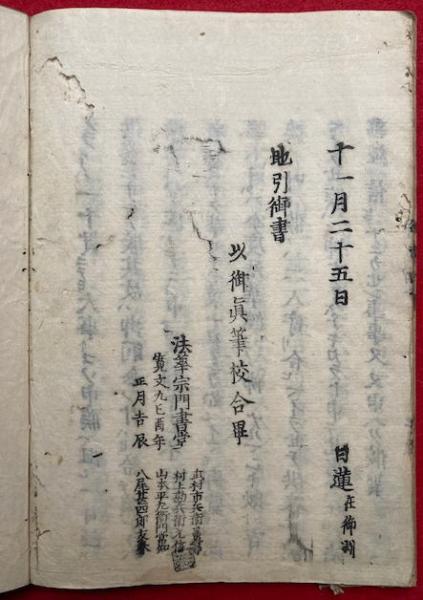 十一月二十五日
日蓮在御判
地引御書
以御眞筆校合畢
法華宗門書堂
寛文九己酉年
正月吉辰
村上勘兵衛元信
山本平左衛門常知
八尾甚四郎友春